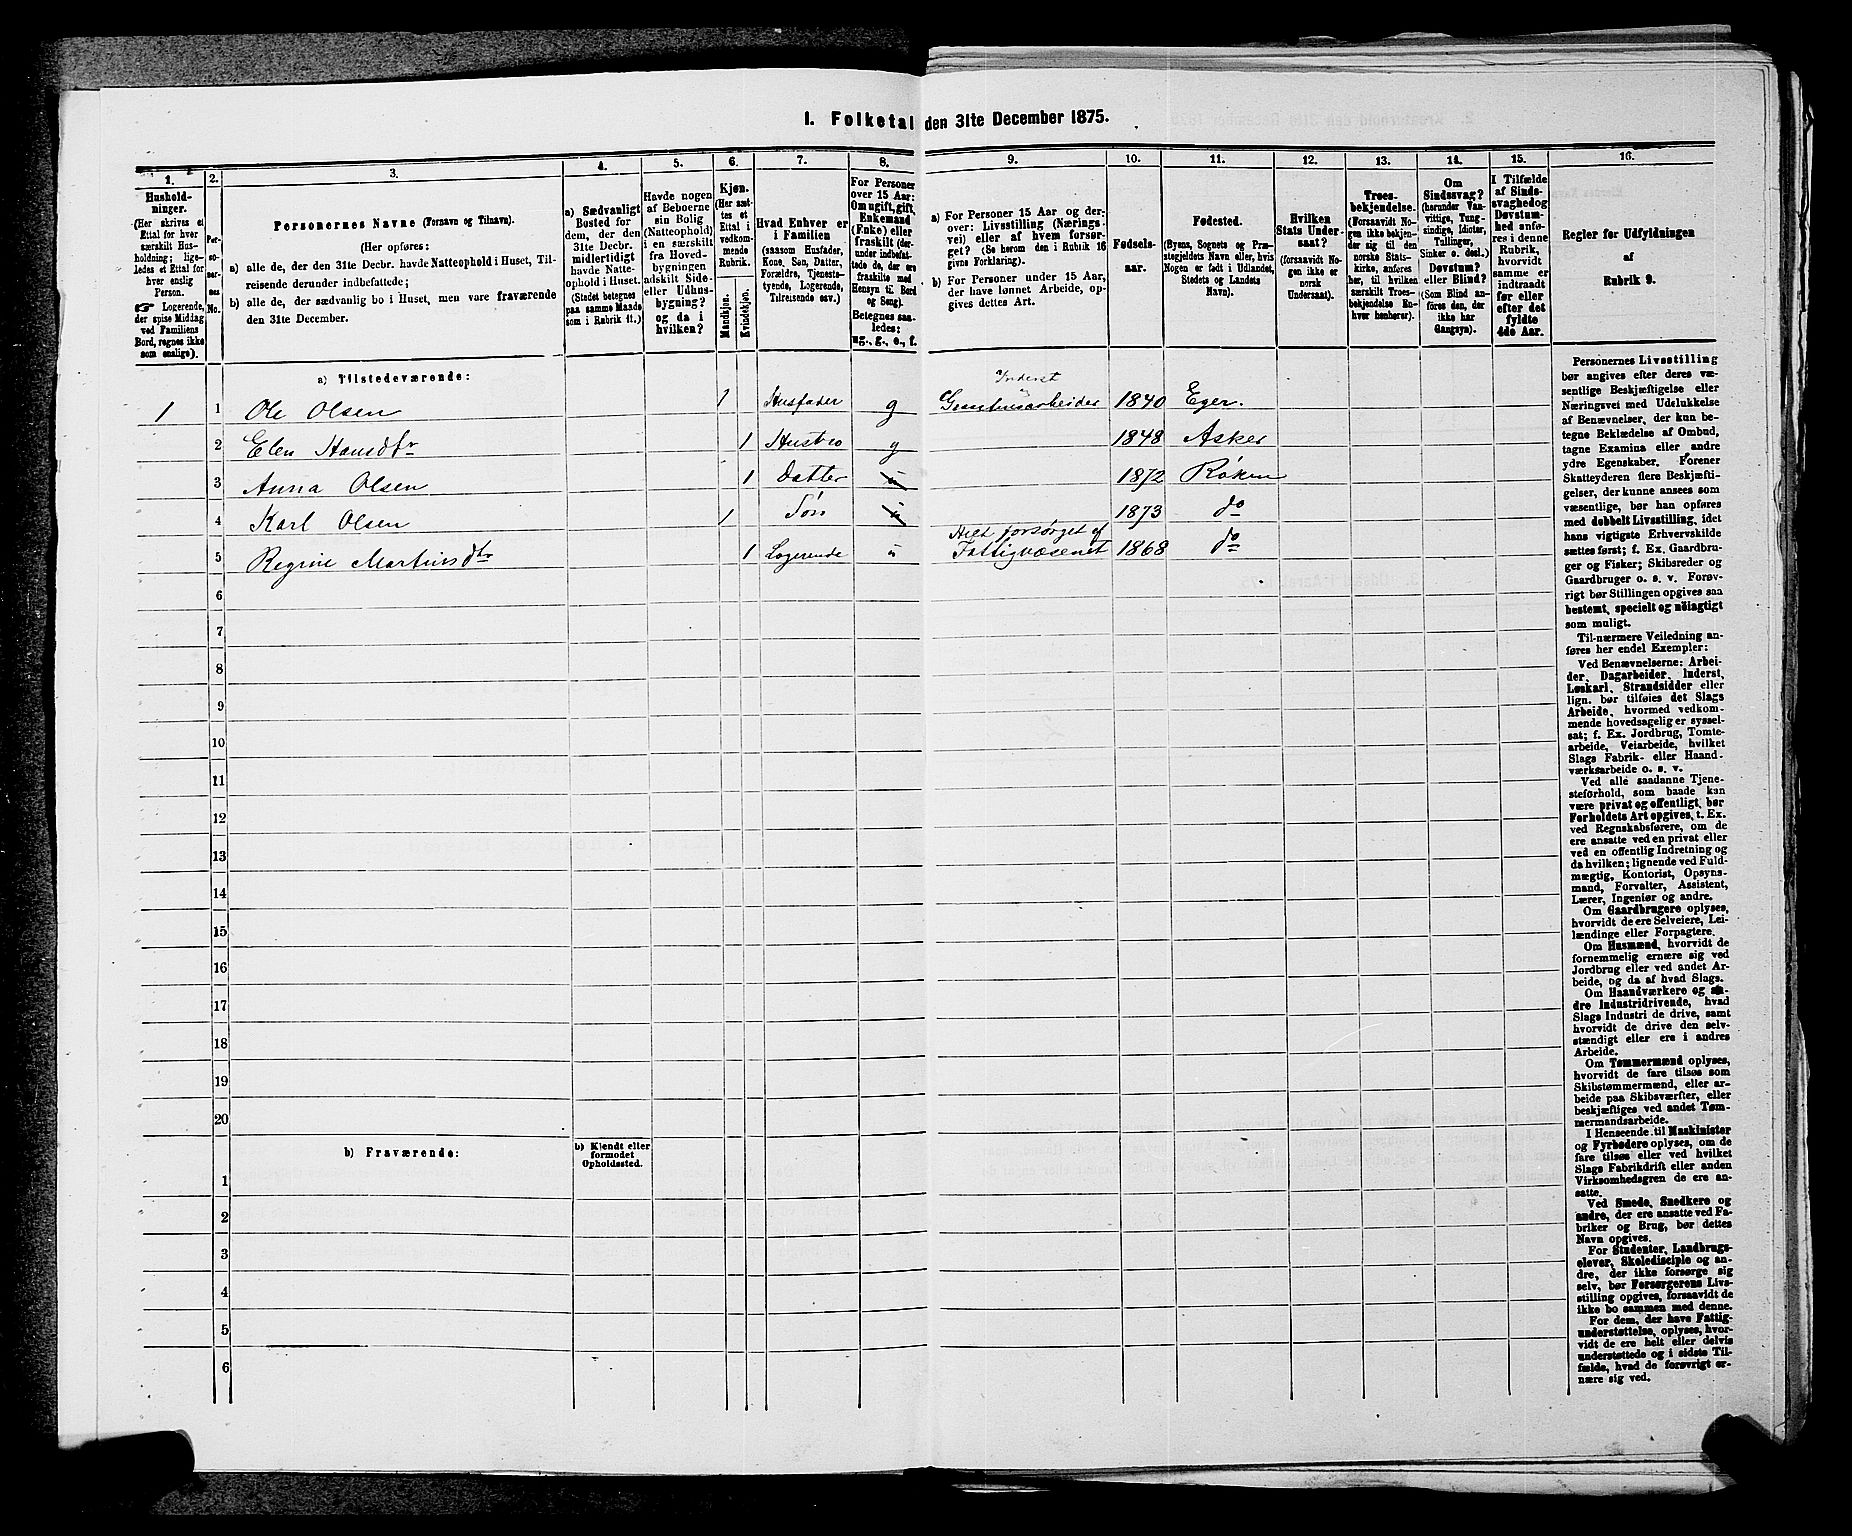 I. Folketal den 31te December 1875.
1. 2. 3. 4. 5. 6. 7. 8. 9. 10. 11. 12. 13. 14. 15. 16.
Hushold-
ninger.
(Her skrives et
Ettal for hver
særskilt Hus-
holdning; lige-
ledes et Ettal for
hver enslig
Person.
☛ Logerende,
der spise Middag
ved Familiens
Bord, regnes ikke
som enslige).
Per-
so-
ner-
nes
No.
Personernes Navne (Fornavn og Tilnavn).
(Her opføres:
a) alle de, der den 31te Decbr. havde Natteophold i Huset, Til-
reisende derunder indbefattede;
b) alle de, der sædvanlig bo i Huset, men vare fraværende
den 31te December.
a) Sædvanligt
Bosted for
dem, der den
31te Decbr.
midlertidigt
havde Natte-
ophold i Huset.
(Stedet betegnes
paa samme Maade
som i Rubrik 11.)
Havde nogen
af Beboerne
sin Bolig
(Natteophold)
i en særskilt
fra Hoved-
bygningen
adskilt Side-
eller Udhus-
bygning?
og da i
hvilken?
Kjøn.
(Her sæt-
tes et
Ettal i
vedkom-
mende
Rubrik.
Mandkjøn.
Kvindekjøn.
Hvad Enhver er
i Familien
(saasom Husfader,
Kone, Søn, Datter,
Forældre, Tjeneste-
tyende, Logerende,
Tilreisende osv.)
For Personer
over 15 Aar:
Om ugift, gift,
Enkemand
(Enke) eller
fraskilt (der-
under indbefat-
tede de, der ere
fraskilte med
Hensyn til Bord
og Seng).
Betegnes saa-
ledes:
ug., g., e., f.
a) For Personer 15 Aar og der-
over: Livsstilling (Nærings-
vei) eller af hvem forsør-
get? (Se herom den i Rubrik 16
givne Forklaring).
b) For Personer under 15 Aar,
der have lønnet Arbeide, op-
gives dettes Art.
Fødsels-
aar.
Fødested.
(Byens, Sognets og Præ-
stegjeldets Navn eller, hvis
Nogen er født i Udlandet,
Stedets og Landets
Navn).
Hvilken
Stats Under-
saat?
(forsaavidt No-
gen ikke er
norsk
Undersaat).
Troes-
bekjendelse.
(Forsaavidt No-
gen ikke bekjen-
der sig til den
norske Stats-
kirke, anføres
her, til hvilken
særskilt Troes-
bekjendelse En-
hver henhører).
Om
Sindssvag?
(herunder Van-
vittige, Tung-
sindige, Idioter,
Tullinger,
Sinker o. desl.)
Døvstum?
eller Blind?
(Som Blind an-
føres den, der
ikke har
Gangsyn).
I Tilfælde
af Sinds-
svaghed og
Døvstum-
hed anfø-
res i denne
Rubrik,
hvorvidt
samme er
indtraadt
før eller
efter det
fyldte
4de Aar.
Regler for Udfyldningen
af
Rubrik 9.
a) Tilstedeværende:
Inderst
1 1 Ole Olsen 1 Husfader g Grantusarbeider 1840 Eger.
2 Elen Hansdtr 1 Hustro g 1848 Asker
3 Anna Olsen 1 Datter u 1872 Røken
4 Karl Olsen 1 Søn u 1873 do
Helt forsørget af
5 Regine Martinsdtr 1 Logerende u Fattigvæsenet 1868 do
6
7
8
9
10
11
12
13
14
15
16
17
18
19
20
b) Fraværende:
b) Kjendt eller
formodet
Opholdssted.
1
2
3
4
5
6
Personernes Livsstilling
bør angives efter deres væ-
sentlige Beskjæftigelse eller
Næringsvei med Udelukkelse
af Benævnelser, der kun be-
tegne Beklædelse af Ombud,
tagne Examina eller andre
ydre Egenskaber. Forener
Skatteyderen flere Beskjæfti-
gelser, der kunne ansees som
væsentlige, bør han opføres
med dobbelt Livsstilling, idet
hans vigtigste Erhvervskilde
sættes først; f. Ex. Gaardbru-
ger og Fisker; Skibsreder og
Gaardbruger o. s. v. Forøv-
rigt bør Stillingen opgives saa
bestemt, specielt og nøiagtigt
som muligt.
Til nærmere Veiledning an-
føres her endel Exempler:
Ved Benævnelserne: Arbei-
der, Dagarbeider, Inderst,
Løskarl, Strandsidder eller
lign. bør tilføies det Slags
Arbeide, hvormed vedkom-
mende hovedsagelig er syssel-
sat; f. Ex. Jordbrug, Tomte-
arbeide, Veiarbeide, hvilket
Slags Fabrik- eller Haand-
værksarbeide o. s. v.
Ved alle saadanne Tjene-
steforhold, som baade kan
være privat og offentligt, bør
Forholdets Art opgives, t. Ex.
ved Regnskabsførere, om de
ere ansatte ved en privat eller
ved en offentlig Indretning og
da hvilken; lignende ved Fuld-
mægtig, Kontorist, Opsyns-
mand, Forvalter, Assistent,
Lærer, Ingeniør og andre.
Om Gaardbrugere oplyses,
hvorvidt de ere Selveiere, Lei-
lændinge eller Forpagtere.
Om Husmænd, hvorvidt de
fornemmelig ernære sig ved
Jordbrug eller ved andet Ar-
beide, og da af hvad Slags.
Om Haandværkere og an-
dre Industridrivende, hvad
Slags Industri de drive, samt
hvorvidt de drive den selv-
stændigt eller ere i andres
Arbeide.
Om Tømmermænd oplyses,
hvorvidt de fare tilsøs som
Skibstømmermænd, eller ar-
beide paa Skibsværfter, eller
beskjæftiges ved andet Tøm-
mermandsarbeide.
I Henseende til Maskinister
og Fyrbødere oplyses, om de
fare tilsøs eller ved hvilket
Slags Fabrikdrift eller anden
Virksomhedsgren de ere an-
satte.
Ved Smede, Snedkere og
andre, der ere ansatte ved Fa-
briker og Brug, bør dettes
Navn opgives.
For Studenter, Landbrugs-
elever, Skoledisciple og an-
dre, der ikke forsørge sig
selv, bør Forsørgerens Livs-
stilling opgives, forsaavidt de
ikke bo sammen med denne.
For dem, der have Fattig-
understøttelse, oplyses, hvor-
vidt de ere helt eller delvis
understøttede og i sidste Til-
fælde, hvad de forøvrigt er-
nære sig ved.